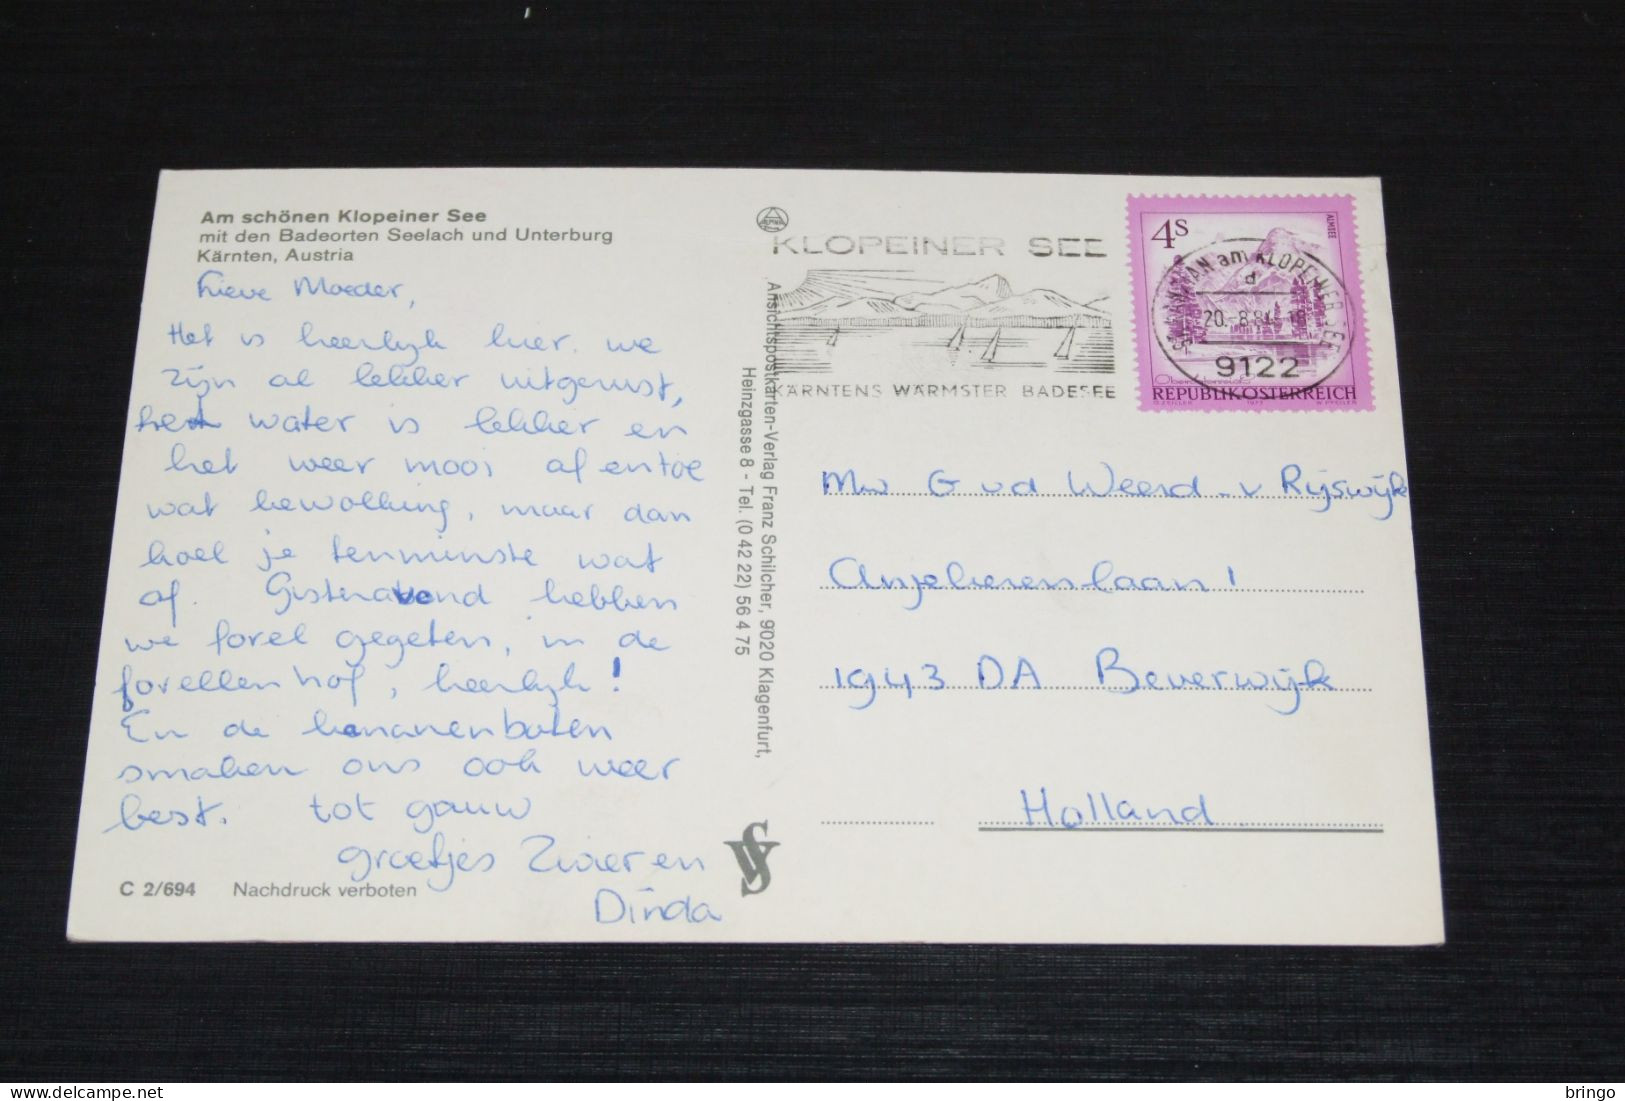 Am schönen Klopeiner See
mit den Badeorten Seelach und Unterburg
Kärnten, Austria
Lieve Moeder,
Het is heerlijk hier. we
zijn al lekker uitgerust,
het water is lekker en
het weer mooi af en toe
wat bewolking, maar dan
koel je tenminste wat
af. Gisteravond hebben
we forel gegeten, in de
forellenhof, heerlijk!
En de bananenboten
smaken ons ook weer
best. tot gauw
groetjes en
Dinda
C 2/694 Nachdruck verboten
Ansichtspostkarten-Verlag Franz Schilcher, 9020 Klagenfurt,
Heinzgasse 8 - Tel. (0 42 22) 56 4 75
KLOPEINER SEE
KÄRNTENS WÄRMSTER BADESEE
4S
ALMSEE
am KLOPEINER SEE
d
20.-8.84-18
9122
Oberösterreich
REPUBLIK ÖSTERREICH
Mw G vd Weerd-v Rijswijk
Anjelierenlaan 1
1943 DA Beverwijk
Holland
bringo